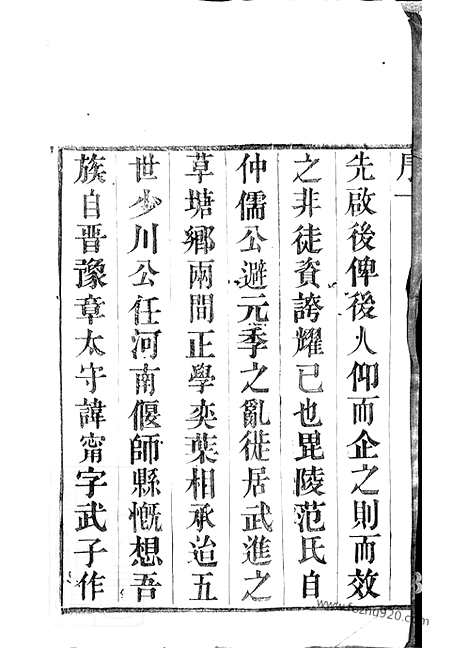 序一
先啟後俾後人仰而企之則而效
之非徒資誇耀已也毘陵范氏自
仲儒公避元季之亂徙居武進之
草塘鄉兩間正學奕葉相承迨五
世少川公任河南偃師縣慨想吾
族自晋豫章太守諱甯字武子作
www.fozhu920.com